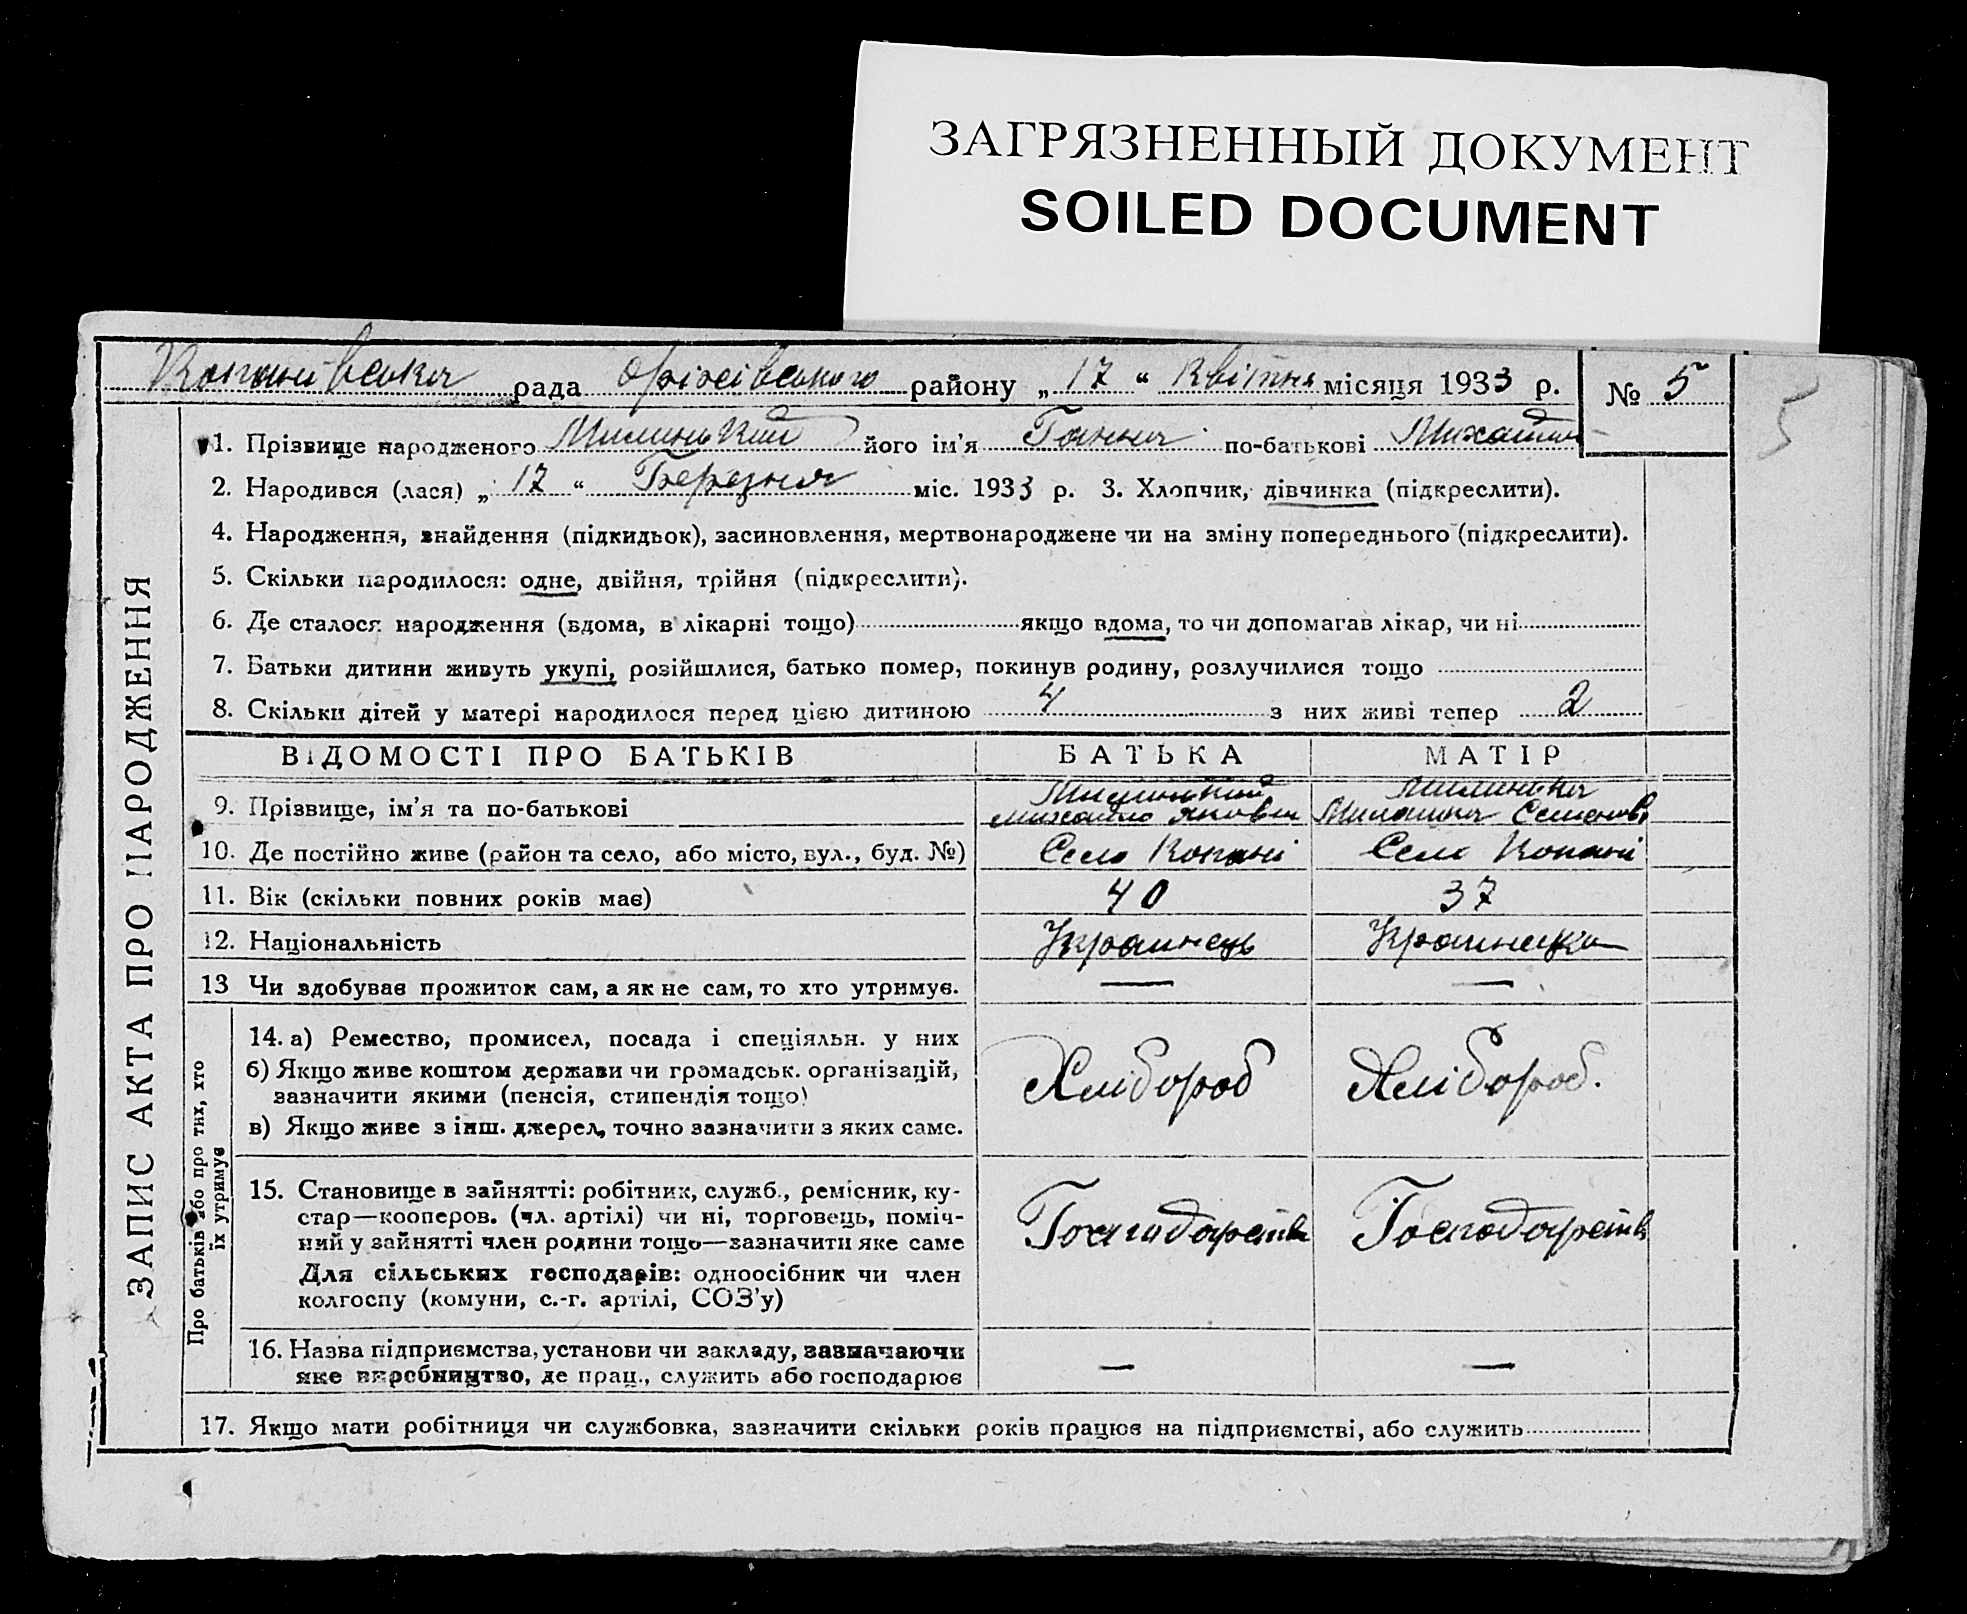 ЗАГРЯЗНЕННЫЙ ДОКУМЕНТ
SOILED DOCUMENT
Копанівська рада Оріхівського району „ 17 “ Квітня місяця 1933 р. № 5
5
1. Прізвище народженого його ім'я Ганна по-батькові Михайл
2. Народився (лася) „ 17 “ Березня міс. 1933 р. 3. Хлопчик, дівчинка (підкреслити).
4. Народження, знайдення (підкидьок), засиновлення, мертвонароджене чи на зміну попереднього (підкреслити).
5. Скільки народилося: одне, двійня, трійня (підкреслити).
6. Де сталося народження (вдома, в лікарні тощо) якщо вдома, то чи допомагав лікар, чи ні
7. Батьки дитини живуть укупі, розійшлися, батько помер, покинув родину, розлучилися тощо
8. Скільки дітей у матері народилося перед цією дитиною 4 з них живі тепер 2
ЗАПИС АКТА ПРО НАРОДЖЕННЯ
ВІДОМОСТІ ПРО БАТЬКІВ БАТЬКА МАТІР
9. Прізвище, ім'я та по-батькові
10. Де постійно живе (район та село, або місто, вул., буд. №) Село Копані Село Копані
11. Вік (скільки повних років має) 40 37
12. Національність Украинець Украинка
13 Чи здобував прожиток сам, а як не сам, то хто утримує. — —
Про батьків або про тих, хто
їх утримує
14. а) Ремество, промисел, посада і спеціяльн. у них
б) Якщо живе коштом держави чи громадськ. організацій,
зазначити якими (пенсія, стипендія тощо)
Хлібороб Хлібороб.
в) Якщо живе з інш. джерел, точно зазначити з яких саме.
15. Становище в зайнятті: робітник, служб., ремісник, ку-
стар—кооперов. (чл. артілі) чи ні, торговець, поміч-
ний у зайнятті член родини тощо—зазначити яке саме
Господарств Господарств
Для сільських господарів: одноосібник чи член
колгоспу (комуни, с.-г. артілі, СОЗ'у)
16. Назва підприємства, установи чи закладу, зазначаючи
яке виробництво, де прац., служить або господарює — —
17. Якщо мати робітниця чи службовка, зазначити скільки років працює на підприємстві, або служить